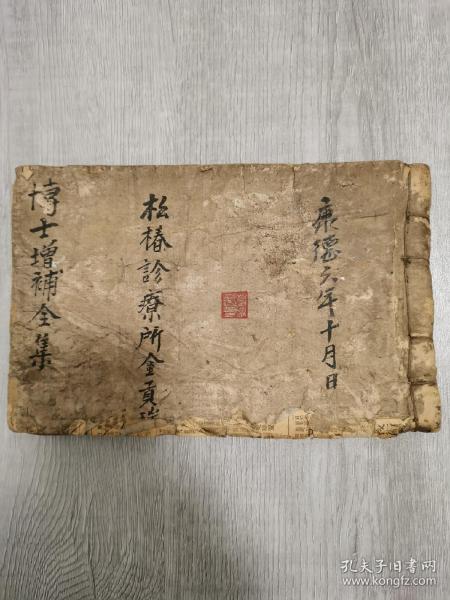 康德六年十月日
松椿診療所金貢
博士增補全集
孔夫子旧书网
www.kongfz.com